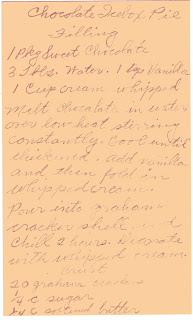 Chocolate Icebox Pie
Filling
1 Pkg Sweet Chocolate
3 Tbls. Water. 1 tsp Vanilla
1 Cup cream whipped
Melt chocolate in water
over low heat stirring
constantly. Cool until
thickened. add vanilla
and then fold in
whipped cream.
Pour into graham
cracker shell and
Chill 2 hours. Decorate
with whipped cream.
Crust
20 graham crackers
1/4 c sugar
1/4 c softened butter